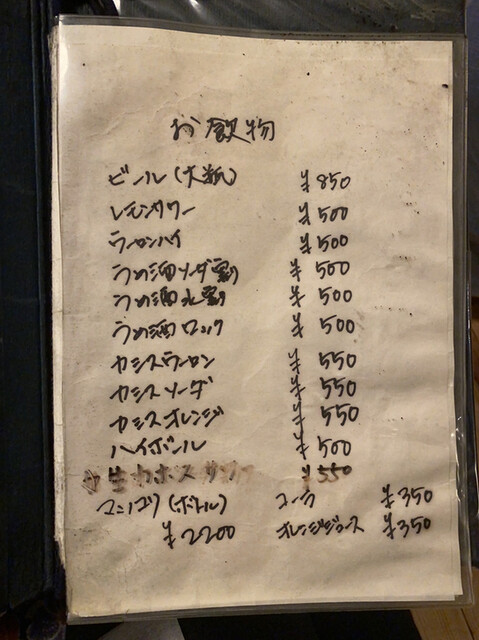 お飲物
ビール(大瓶) ¥850
レモンサワー ¥500
ウーロンハイ ¥500
うめ酒ソーダ割 ¥500
うめ酒水割 ¥500
うめ酒ロック ¥500
カシスウーロン ¥550
カシスソーダ ¥550
カシスオレンジ ¥550
ハイボール ¥500
生カボスサワー ¥550
マッコリ(ボトル) コーラ ¥350
¥2200 オレンジジュース ¥350